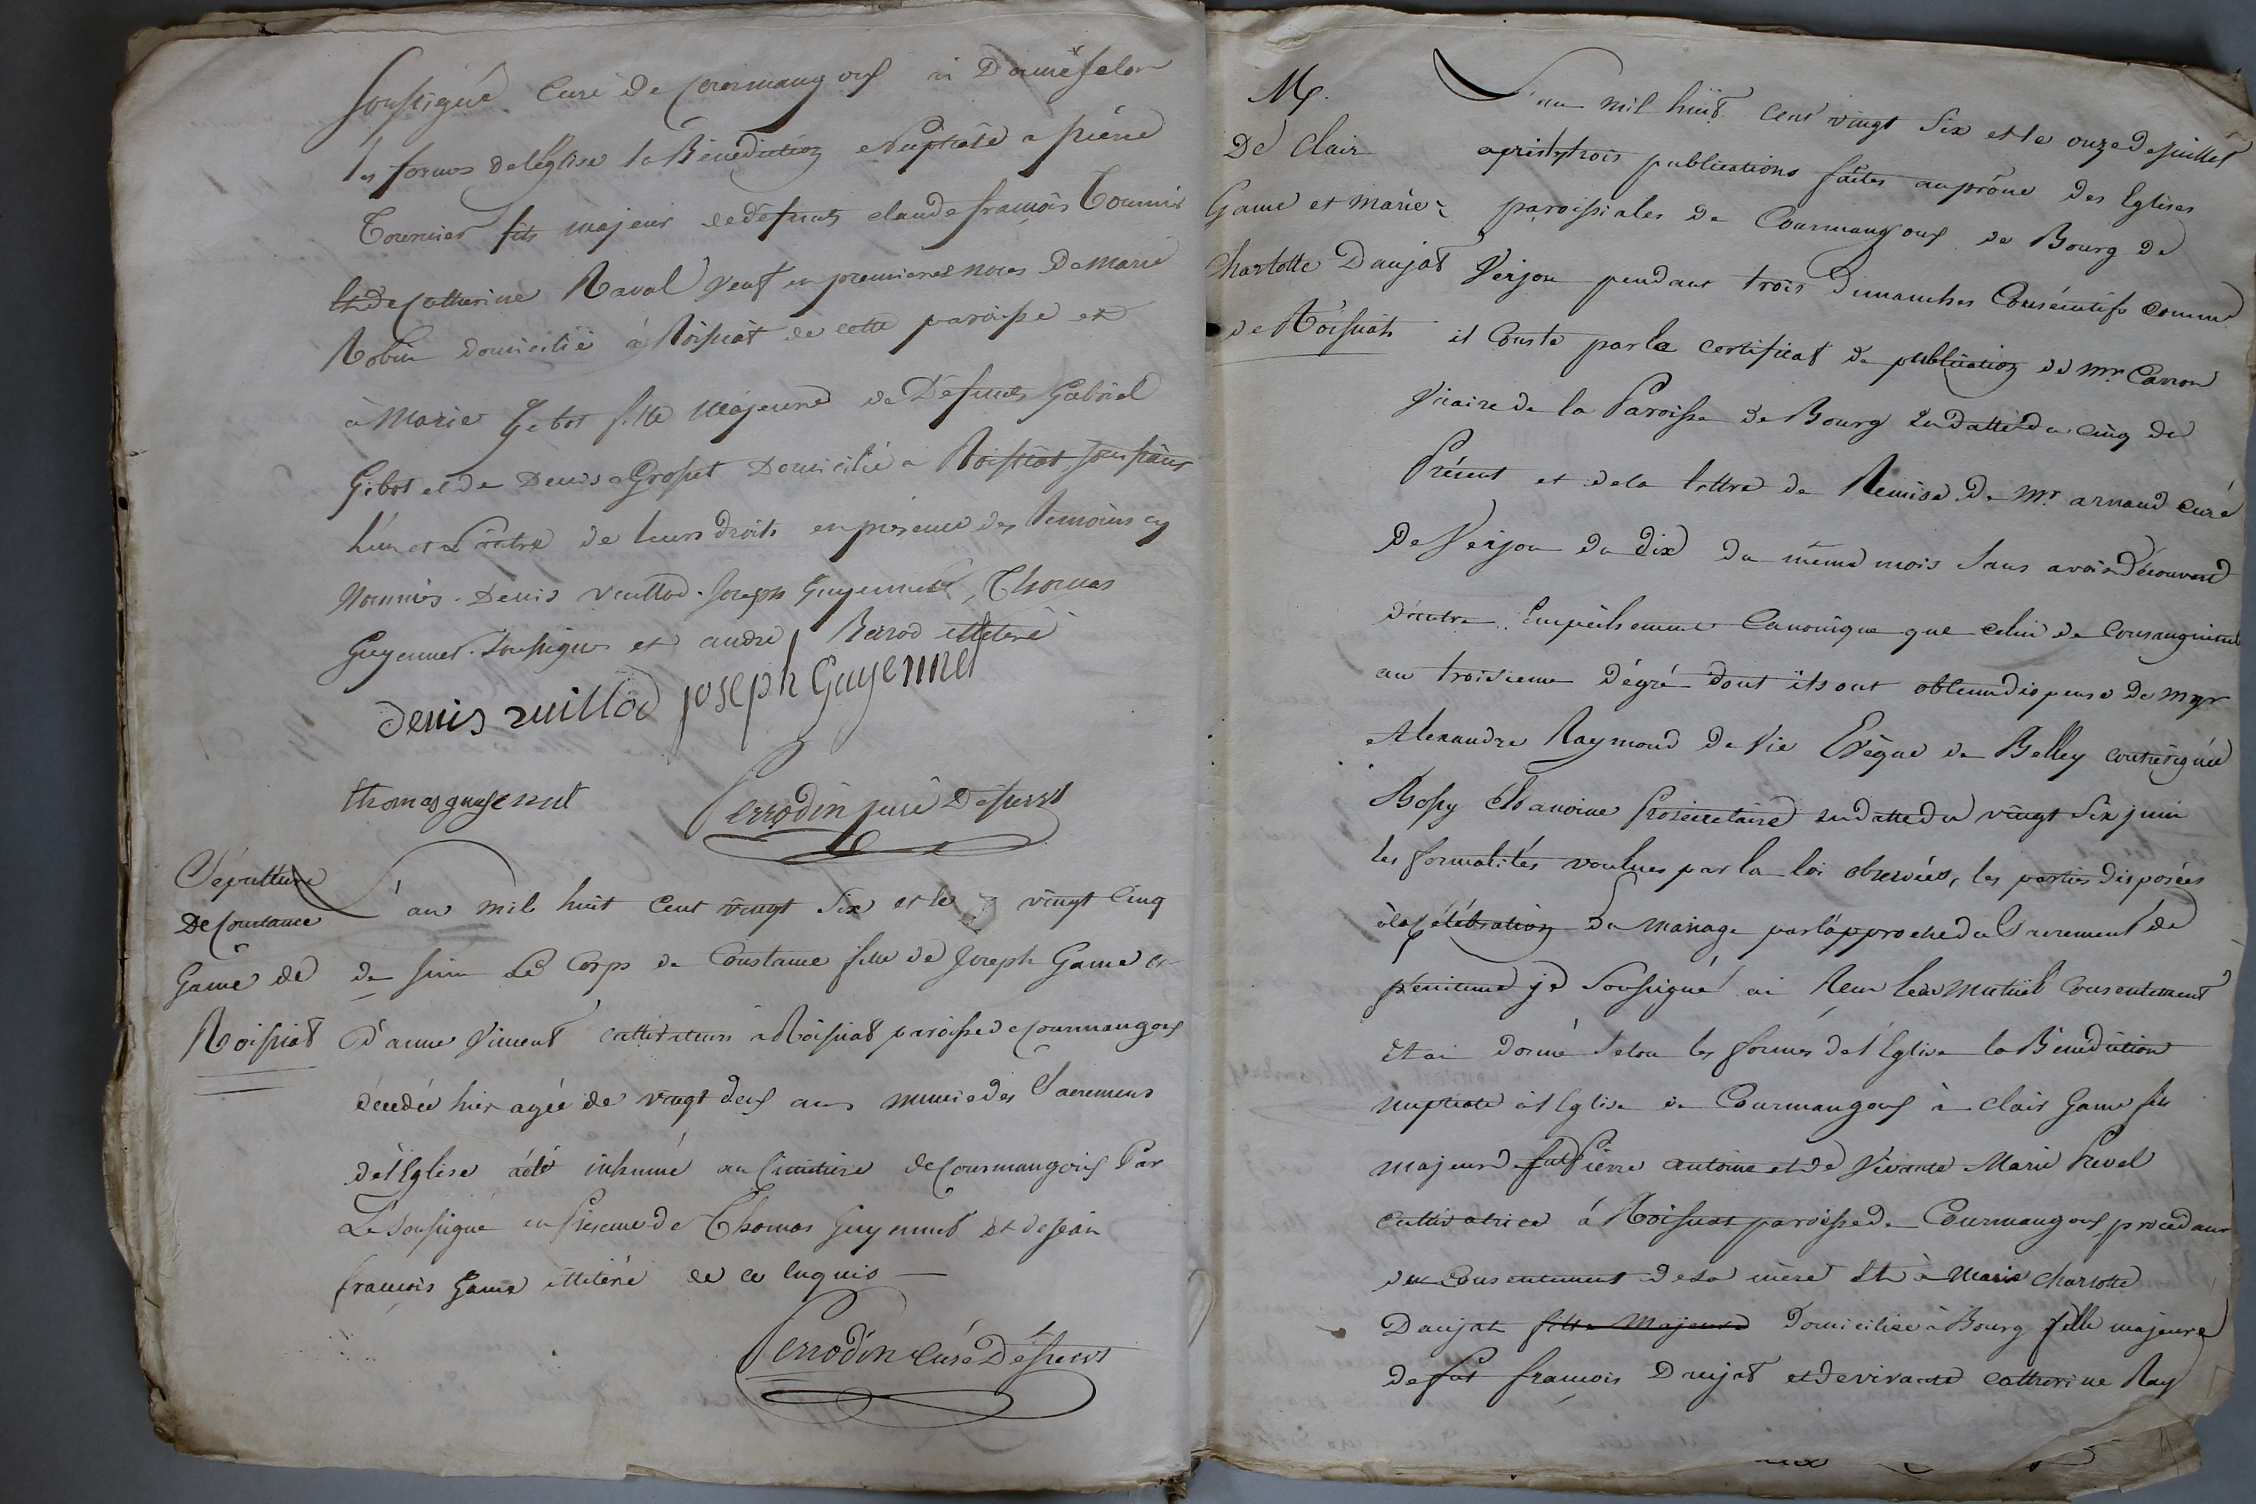 soussigné Curé de Courmangoux ai Donné selon
les formes de l'église la Bénédiction Nuptiale a pierre
Tournier fils majeur de défunts claude françois Tournier
et de Catherine Raval veuf en premieres noces De marie
Robin domicilié à Roissiat de cette paroisse et
à Marie Gibot fille majeure de Défunts Gabriel
Gibot et de Denise Grosset Domiciliée a Roissiat jouissants
l'un et L'autre de leurs droits en présence des témoins cy
Nommés. Denis vuillod. Joseph Guyennet, Thomas
Guyennet. soussignés et andré Barod illéteré
denis vuillod joseph Guyennet
thomas guyennet Perrodin curé Desservt
Sépulture
De Constance
Game de
Roissiat
L'an mil huit cent vingt six et le vingt cinq
de juin Le Corps de Constance fille de Joseph Game et
d'anne Viment cultivateurs à Roissiat paroisse de Courmangoux
décédée hier agée de vingt deux ans munie des Sacremens
de l'Eglise a été inhumé au Cimitière de Courmangoux Par
Le Soussigné en Présence de Thomas Guyennet et de jean
françois Game illétéré de ce enquis
Perrodin curé Desservt
M.
De Clair
Game et marie
charlotte Daujat
de Roissiat
L'an mil huit cent vingt six et le onze de juillet
après trois publications faites au prône des Eglises
paroissiales de Courmangoux de Bourg de
Verjon pendant trois Dimanches Consécutifs comme
il Conste par le certificat de publication de mr. Carron
Vicaire de la Paroisse de Bourg en datte du cinq du
Présent et de la lettre de Remise de Mr. arnaud curé
De Verjon du dix du même mois sans avoir Découvert
d'autre Empêchement Canonique que celui de Consanguinité
au troisieme dégré dont ils ont obtenu dispense de mgr
Alexandre Raymond De Vie Evêque de Belley contresignée
Bossy Chanoine Prosecrétaire en datte du vingt six juin
les formalités voulues par la loi observées, les parties disposées
à la Célébration du mariage par l'approche du Sacrement de
pénitence je Soussigné ai Reçu leur mutuel consentement
Et ai donné selon les formes de l'Eglise la Bénédiction
nuptiale à l'Eglise de Courmangoux à clair Game fils
majeur de fut Pierre antoine et de Vivante Marie Prevel
cultivatrice à Roissiat paroisse de Courmangoux procédant
du Consentement de sa mère Et à Marie charlotte
Daujat fille Majeure Domiciliée à Bourg fille majeure
de fut françois Daujat et de vivante catherine Ray